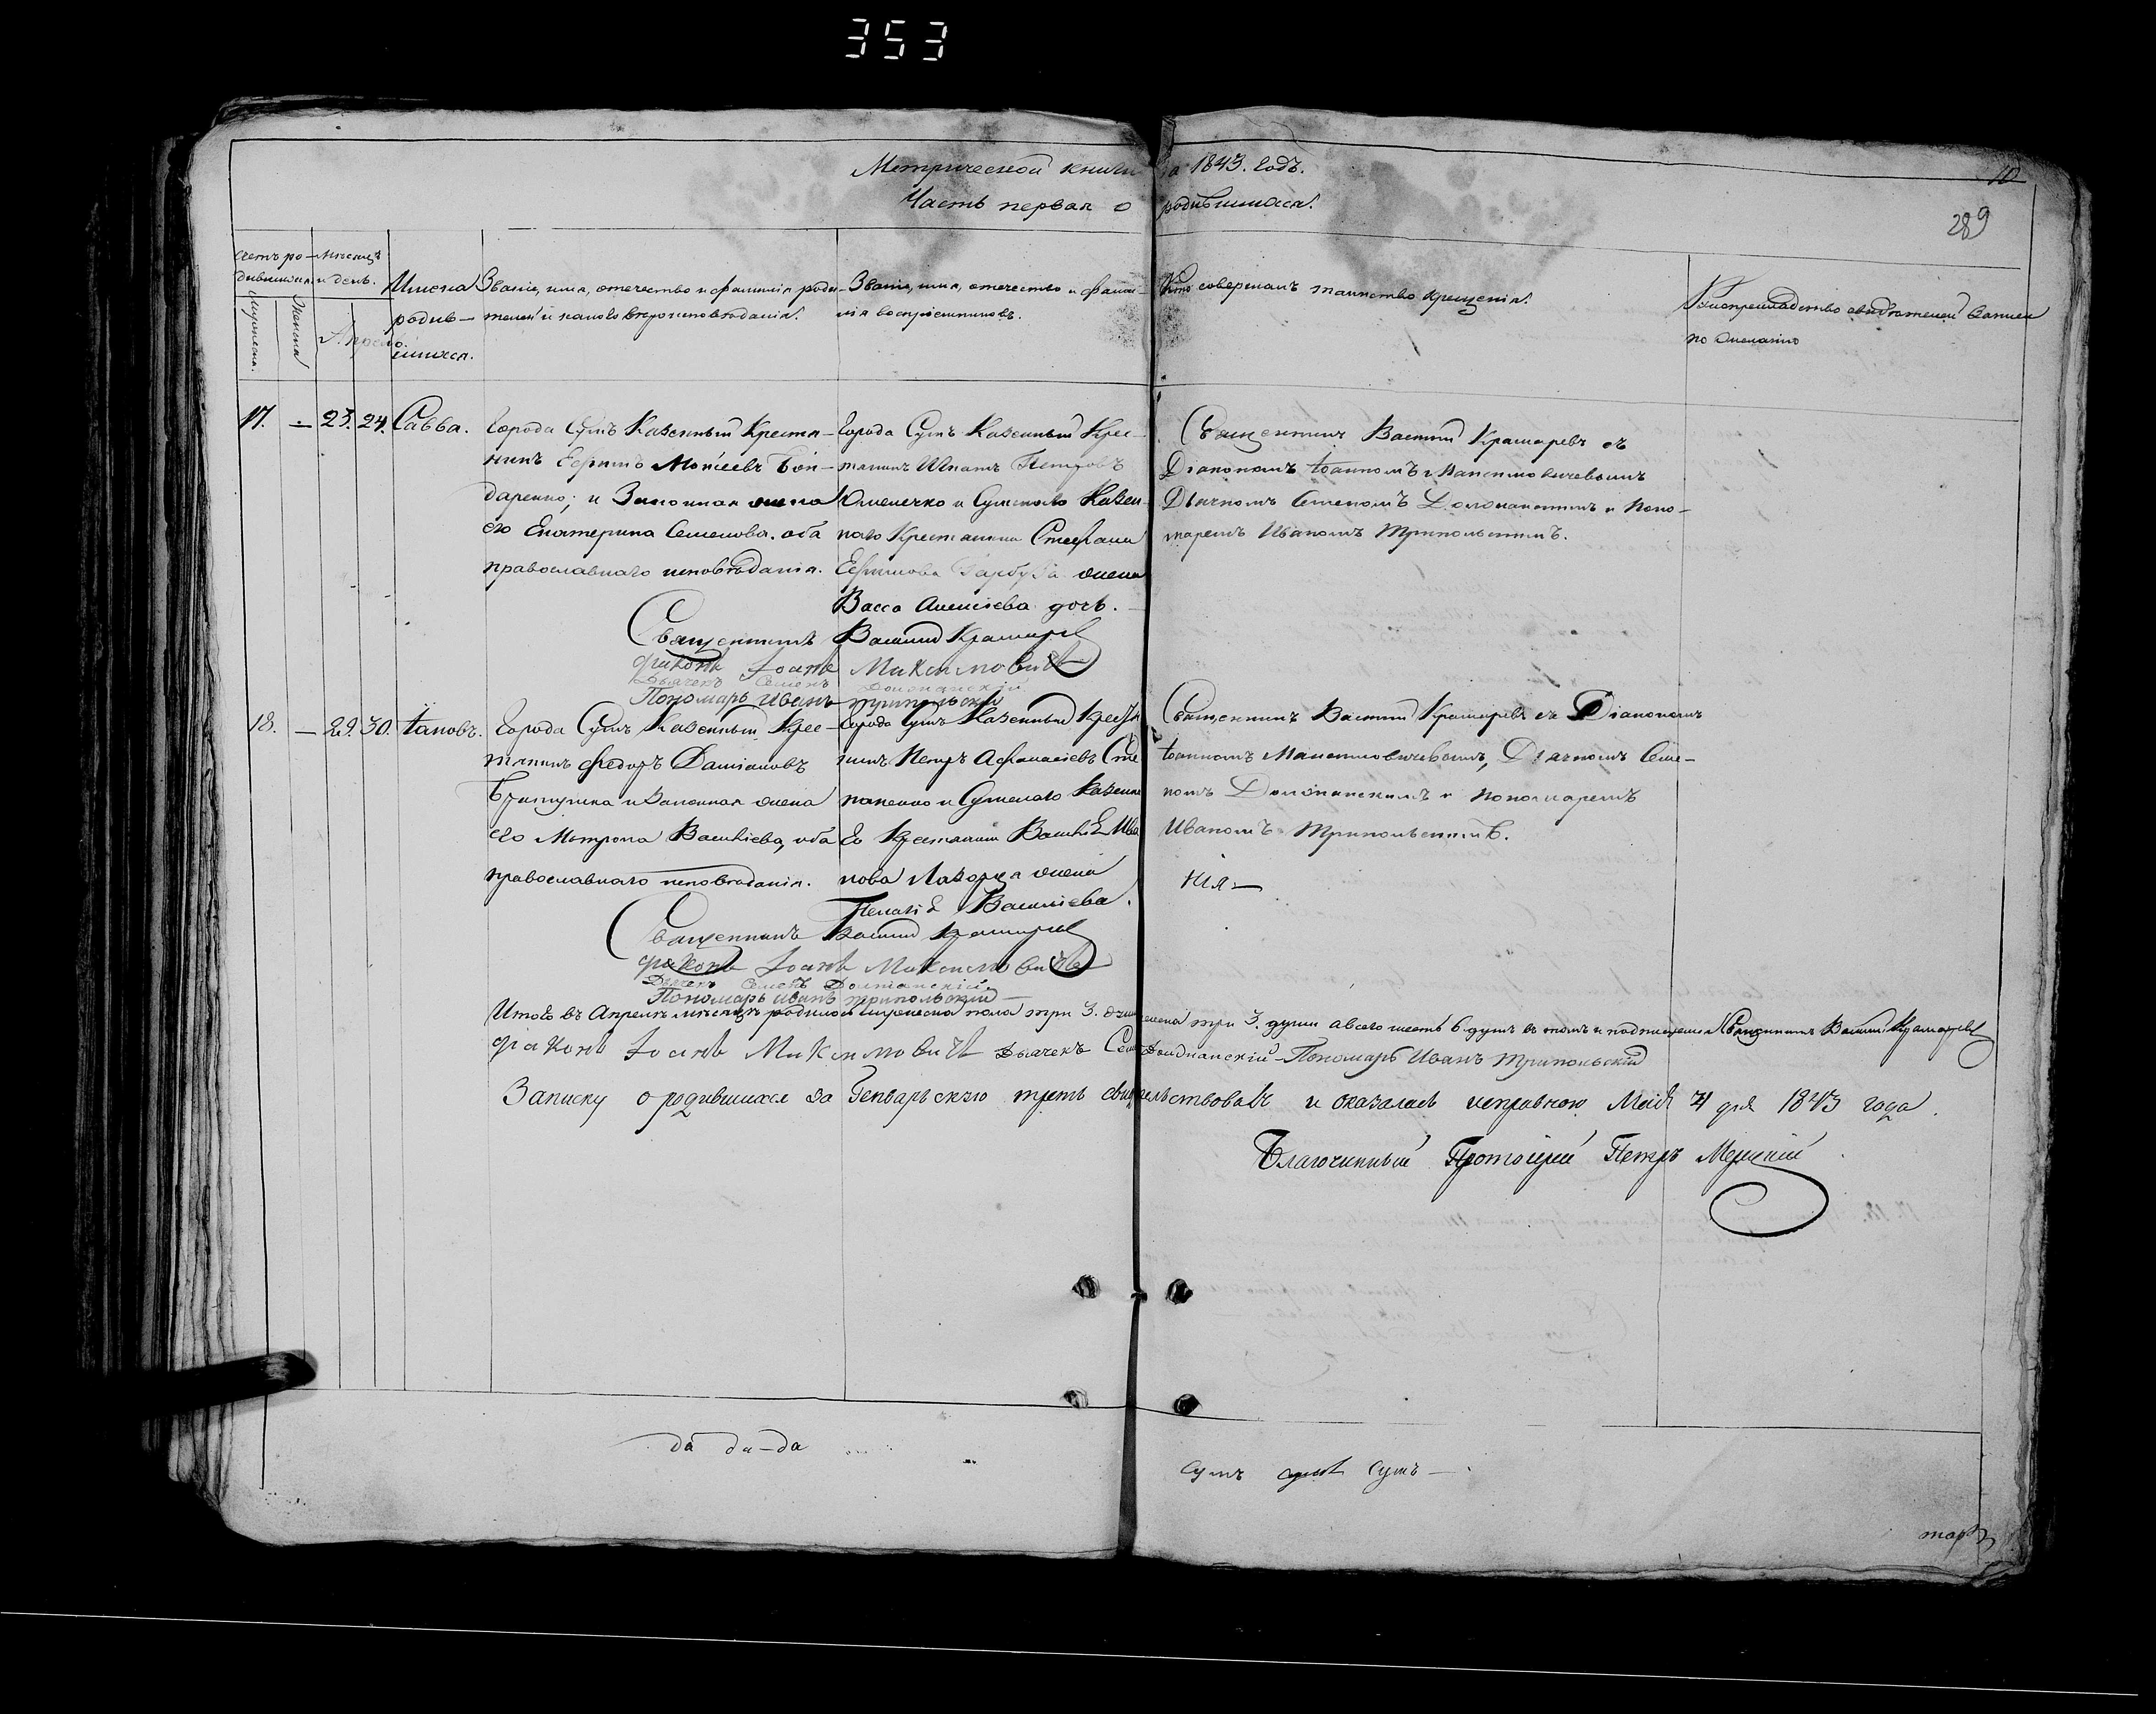 353
Метрической книги на 1843. годъ.
Часть первая о родившихся.
10
289
Счетъ родившихся.
Мужеска.
Женска
Мѣсяцъ и день.
Апрель.
Имена родив-
шихся.
Званіе, имя, отечество и фамилія роди-
телей и какого вѣроисповѣданія.
Званіе, имя, отечество и фами-
лія воспріемниковъ.
Кто совершалъ таинство крещенія.
Рукоприкладство свидѣтелей записи
по желанію
17. — 23. 24. Савва.
Города Сумъ Казенный Крестья-
нинъ Ефимъ Моѵсеевъ Бон-
даренко; и Законная жена
его Екатерина Семенова. оба
православнаго исповѣданія.
Города Сумъ Казенный Крес-
тьянинъ Игнатъ Петровъ
и Сумскаго Казен-
наго Крестьянина Стефана
Ефимова жена
Васса Алексіева дочь.
Священникъ Василій Крамаревъ съ
Діакономъ Іоанномъ Максимовичевымъ
Дьячкомъ Семеномъ Должанскимъ и Поно-
маремъ Иваномъ Трипольскимъ.
Священникъ Василий Крамаревъ
Діаконъ Іоанъ Максимовичъ
Дьячекъ Семенъ Должанскій
Пономарь Иванъ Трипольскій
18. — 29. 30. Іаковъ.
Города Сумъ Казенный Крес-
тянинъ Федоръ Даміановъ
и Законная жена
его Матрона Васильева, оба
православнаго исповѣданія.
Города Сумъ Казенный Крестья
нинъ Петръ Афанасіевъ Сте
паненко и Сумскаго Казенна
го Крестянина Василія Ива
нова Лазорця жена
Пелагія Василіева.
Священникъ Василій Крамаревъ съ Діакономъ
Іоанномъ Максимовичевымъ, Дьячкомъ Семе-
номъ Должанскимъ и Пономаремъ
Иваномъ Трипольскимъ.
нія—
Священникъ Василий Крамаревъ
Діаконъ Іоанъ Максимовичъ
Дьячекъ Семенъ Должанскій
Пономарь Иванъ Трипольскій
Итого въ Апрелѣ мѣсяцѣ родилось мужеска пола три 3. женска три 3. души а всего шесть 6 душъ въ томъ и подписуемся Священникъ Василий Крамаревъ
Діаконъ Іоанъ Максимовичъ Дьячекъ Семенъ Должанскій Пономарь Иванъ Трипольскій
Записку о родившихся за Генварьскую треть свидѣтельствовалъ и оказалась исправною Маія 4 дня 1843 года.
Благочинный Протоіерей Петръ
да да—да
Сумъ Сумъ Сумъ —